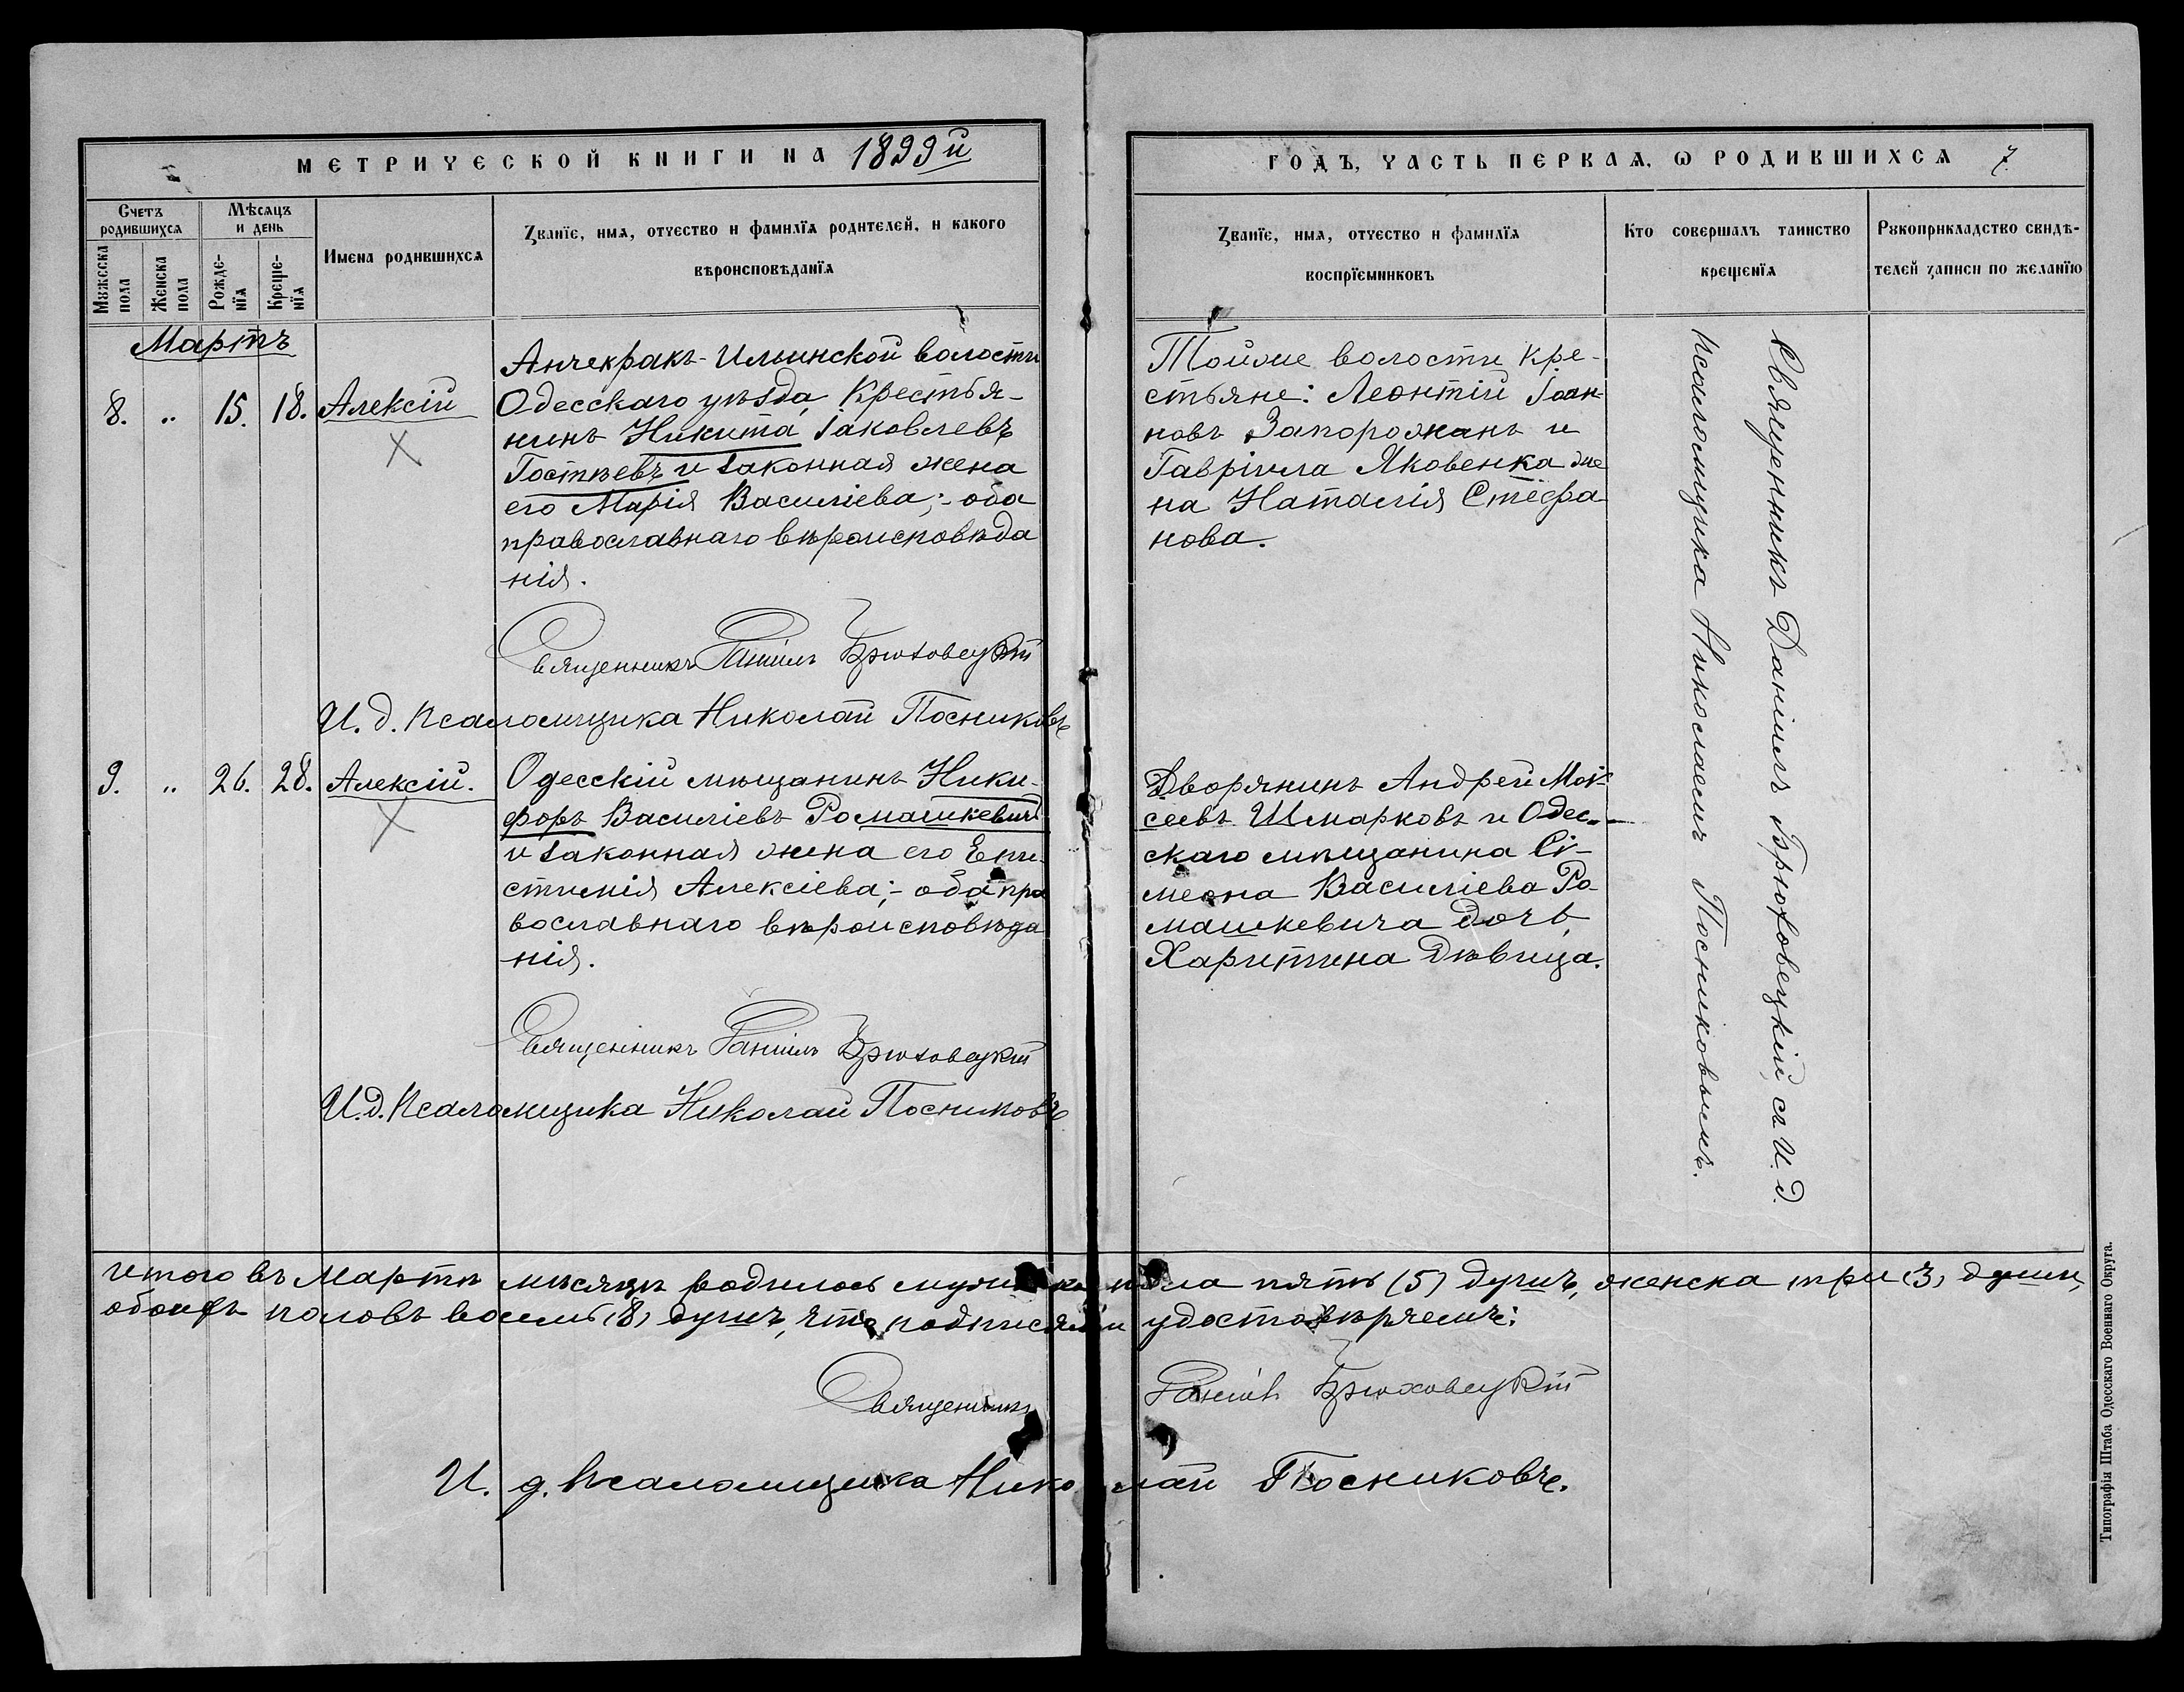 МЕТРИЧЕСКОЙ КНИГИ НА 1899й
ГОДЪ, ЧАСТЬ ПЕРВАЯ, Ѡ РОДИВШИХСЯ 7.
Счетъ родившихся
Мѣсяцъ и день
Мꙋжеска пола
Женска пола
Рожденїя
Крещенїя
Имена родившихся
Званїе, имя, отчество и фамилїя родителей, и какого
вѣроисповѣданїя
Званїе, имя, отчество и фамилїя
воспрїемниковъ
Кто совершалъ таинство
крещенїя
Рꙋкоприкладство свидѣ-
телей записи по желанїю
Мартъ
8. „ 15. 18. Алексій
Анчекракъ-Ильинской волости
Одесскаго уѣзда, Крестья-
нинъ Никита Іаковлевъ
Гостѣевъ и законная жена
его Марія Василіева;- оба
православнаго вѣроисповѣда
нія.
Священникъ Даніилъ Брюховецкій
И. д. Псаломщика Николай Посниковъ
Тойже волости кре-
стьяне: Леонтій Іоан-
новъ Запорожанъ и
Гавріила Яковенка же
на Наталія Стефа
нова.
9. „ 26. 28. Алексій.
Одесскій мѣщанинъ Ники-
форъ Василіевъ Ромашкевичъ
и законная жена его Епи-
стимія Алексіева;- оба пра
вославнаго вѣроисповѣда
нія.
Священникъ Даніилъ Брюховецкій
И. д. Псаломщика Николай Посниковъ
Дворянинъ Андрей Мои-
сеевъ Шмарковъ и Одес-
скаго мѣщанина Си-
меона Василіева Ро
машкевича дочь,
Харитина Дѣвица.
Священникъ Даніилъ Брюховецкій, съ И. д.
псаломщика Николаемъ Посниковымъ.
Итого въ Мартѣ мѣсяцѣ родилось мужеска пола пять (5) душъ, женска три (3) души,
обоихъ половъ восемь (8) душъ, что подписями удостовѣряемъ:
Священникъ Даніилъ Брюховецкій
И. д. Псаломщика Николай Посниковъ.
Типографія Штаба Одесскаго Военнаго Округа.